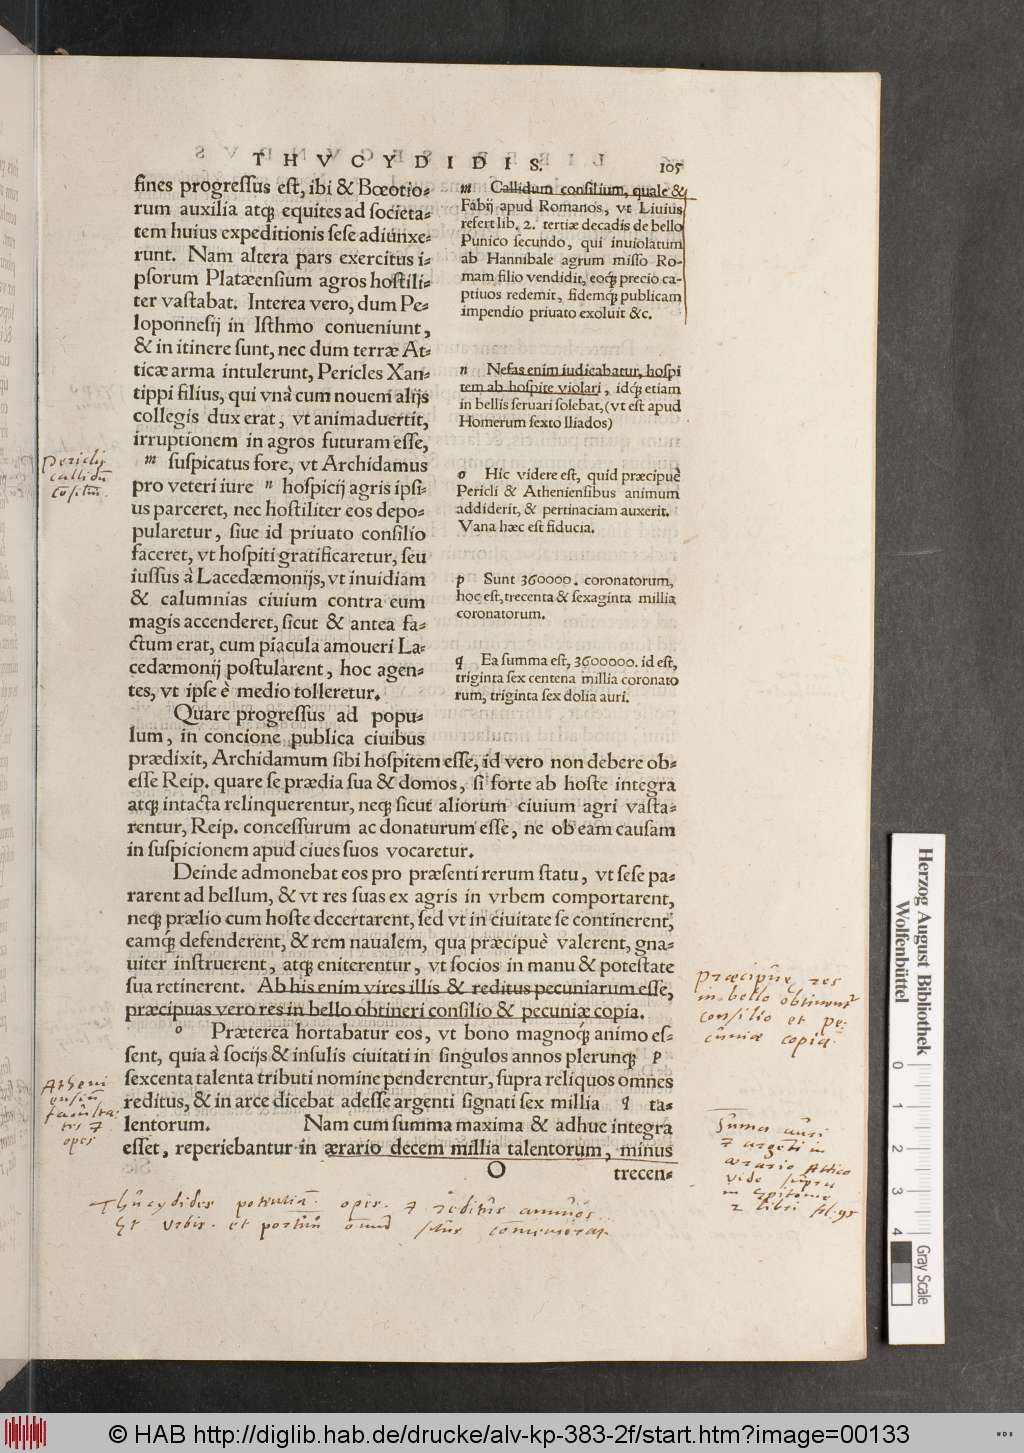 THVCYDIDIS.
105
fines progreſſus eſt, ibi & Bœotio-
rum auxilia atq; equites ad ſocieta-
tem huius expeditionis ſeſe adiunxe-
runt. Nam altera pars exercitus i-
pſorum Platæenſium agros hoſtili-
ter vaſtabat. Interea vero, dum Pe-
loponneſij in Iſthmo conueniunt,
& in itinere ſunt, nec dum terræ At-
ticæ arma intulerunt, Pericles Xan-
tippi filius, qui vnà cum nouem alijs
collegis dux erat, vt animaduertit,
irruptionem in agros futuram eſſe,
m ſuſpicatus fore, vt Archidamus
pro veteri iure n hoſpicij agris ipſi-
us parceret, nec hoſtiliter eos depo-
pularetur, ſiue id priuato conſilio
faceret, vt hoſpiti gratificaretur, ſeu
iuſſus à Lacedæmonijs, vt inuidiam
& calumnias ciuium contra eum
magis accenderet, ſicut & antea fa-
ctum erat, cum piacula amoueri La-
cedæmonij poſtularent, hoc agen-
tes, vt ipſe è medio tolleretur.
Quare progreſſus ad popu-
lum, in concione publica ciuibus
prædixit, Archidamum ſibi hoſpitem eſſe, id vero non debere ob-
eſſe Reip. quare ſe prædia ſua & domos, ſi forte ab hoſte integra
atq; intacta relinquerentur, neq; ſicut aliorum ciuium agri vaſta-
rentur, Reip. conceſſurum ac donaturum eſſe, ne ob eam cauſam
in ſuſpicionem apud ciues ſuos vocaretur.
Deinde admonebat eos pro præſenti rerum ſtatu, vt ſeſe pa-
rarent ad bellum, & vt res ſuas ex agris in vrbem comportarent,
neq; prælio cum hoſte decertarent, ſed vt in ciuitate ſe continerent,
eamq́; defenderent, & rem naualem, qua præcipuè valerent, gna-
uiter inſtruerent, atq; eniterentur, vt ſocios in manu & poteſtate
ſua retinerent. Ab his enim vires illis & reditus pecuniarum eſſe,
præcipuas vero res in bello obtineri conſilio & pecuniæ copia.
o Præterea hortabatur eos, vt bono magnoq́; animo eſ-
ſent, quia à ſocijs & inſulis ciuitati in ſingulos annos plerunq; p
ſexcenta talenta tributi nomine penderentur, ſupra reliquos omnes
reditus, & in arce dicebat adeſſe argenti ſignati ſex millia q ta-
lentorum. Nam cum ſumma maxima & adhuc integra
eſſet, reperiebantur in ærario decem millia talentorum, minus
O
trecen-
m Callidum conſilium, quale &
Fabij apud Romanos, vt Liuius
refert lib. 2. tertiæ decadis de bello
Punico ſecundo, qui inuiolatum
ab Hannibale agrum miſſo Ro-
mam filio vendidit, eoq́; precio ca-
ptiuos redemit, fidemq́; publicam
impendio priuato exoluit &c.
n Nefas enim iudicabatur, hoſpi
tem ab hoſpite violari, idq́; etiam
in bellis ſeruari ſolebat, (vt eſt apud
Homerum ſexto Iliados)
o Hic videre eſt, quid præcipuè
Pericli & Athenienſibus animum
addiderit, & pertinaciam auxerit.
Vana hæc eſt fiducia.
p Sunt 360000. coronatorum,
hoc eſt, trecenta & ſexaginta millia
coronatorum.
q Ea ſumma eſt, 3600000. id eſt,
triginta ſex centena millia coronato
rum, triginta ſex dolia auri.
Periclis
callidũ
Præcipuæ res
in bello obtinent
conſilio et pe-
cuniæ copia.
Atheni
opes
Sũma auri
ærario Attico
vide ſupra
in Epitome
2 libri fol. 95
Thucydides potentiã opes
et vrbis et
Herzog August Bibliothek
Wolfenbüttel
0 1 2 3 4
Gray Scale
© HAB http://diglib.hab.de/drucke/alv-kp-383-2f/start.htm?image=00133